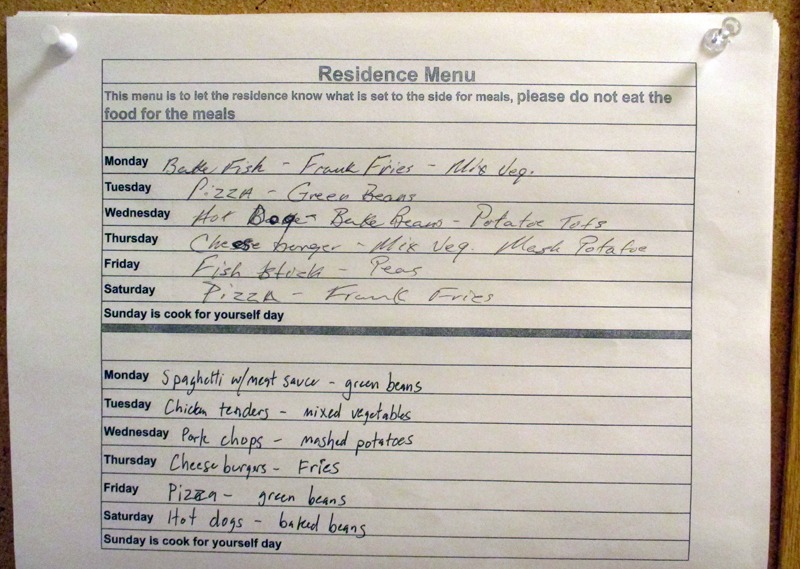 Residence Menu
This menu is to let the residence know what is set to the side for meals, please do not eat the
food for the meals
Monday Bake Fish - Frank Fries - Mix Veg.
Tuesday Pizza - Green Beans
Wednesday Hot Doge - Bake Beans - Potatoe Tots
Thursday Cheese burger - Mix Veg. Mash Potatoe
Friday Fish Stick - Peas
Saturday Pizza - Frank Fries
Sunday is cook for yourself day
Monday Spaghetti w/meat sauce - green beans
Tuesday Chicken tenders - mixed vegetables
Wednesday Pork chops - mashed potatoes
Thursday Cheeseburgers - Fries
Friday Pizza - green beans
Saturday Hot dogs - baked beans
Sunday is cook for yourself day